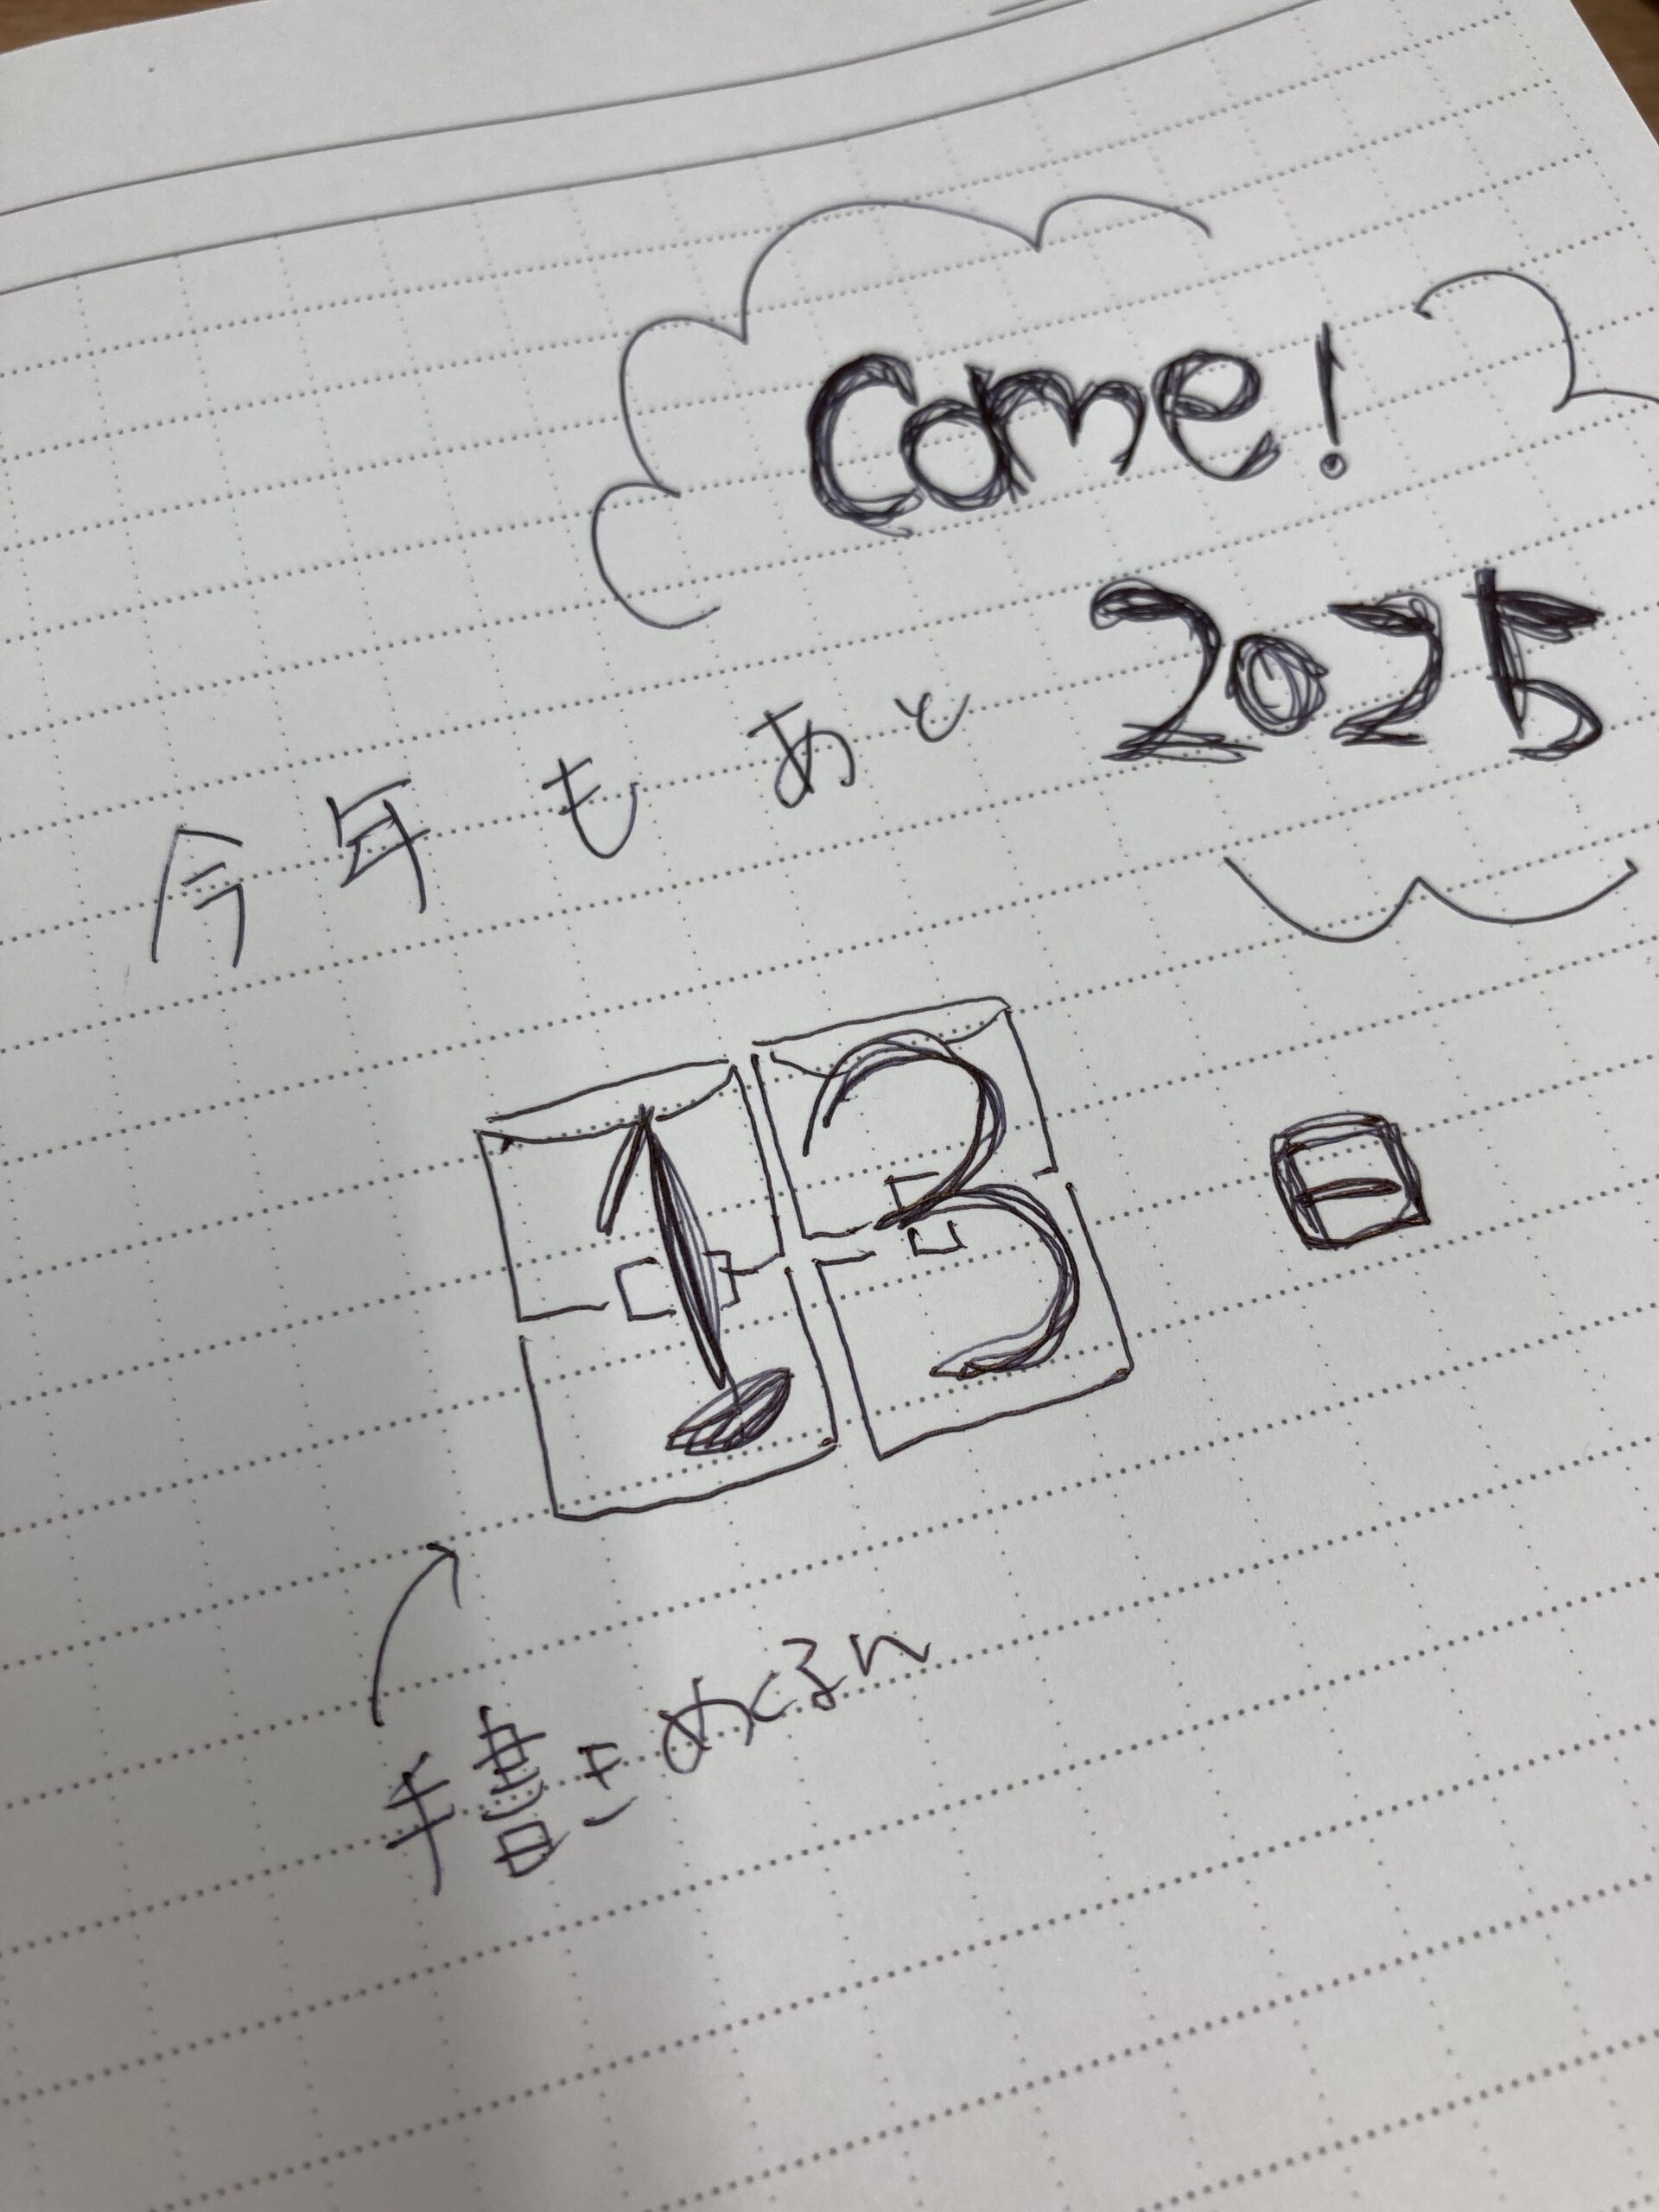 Come!
2025
今年もあと
13日
手書きめくるん